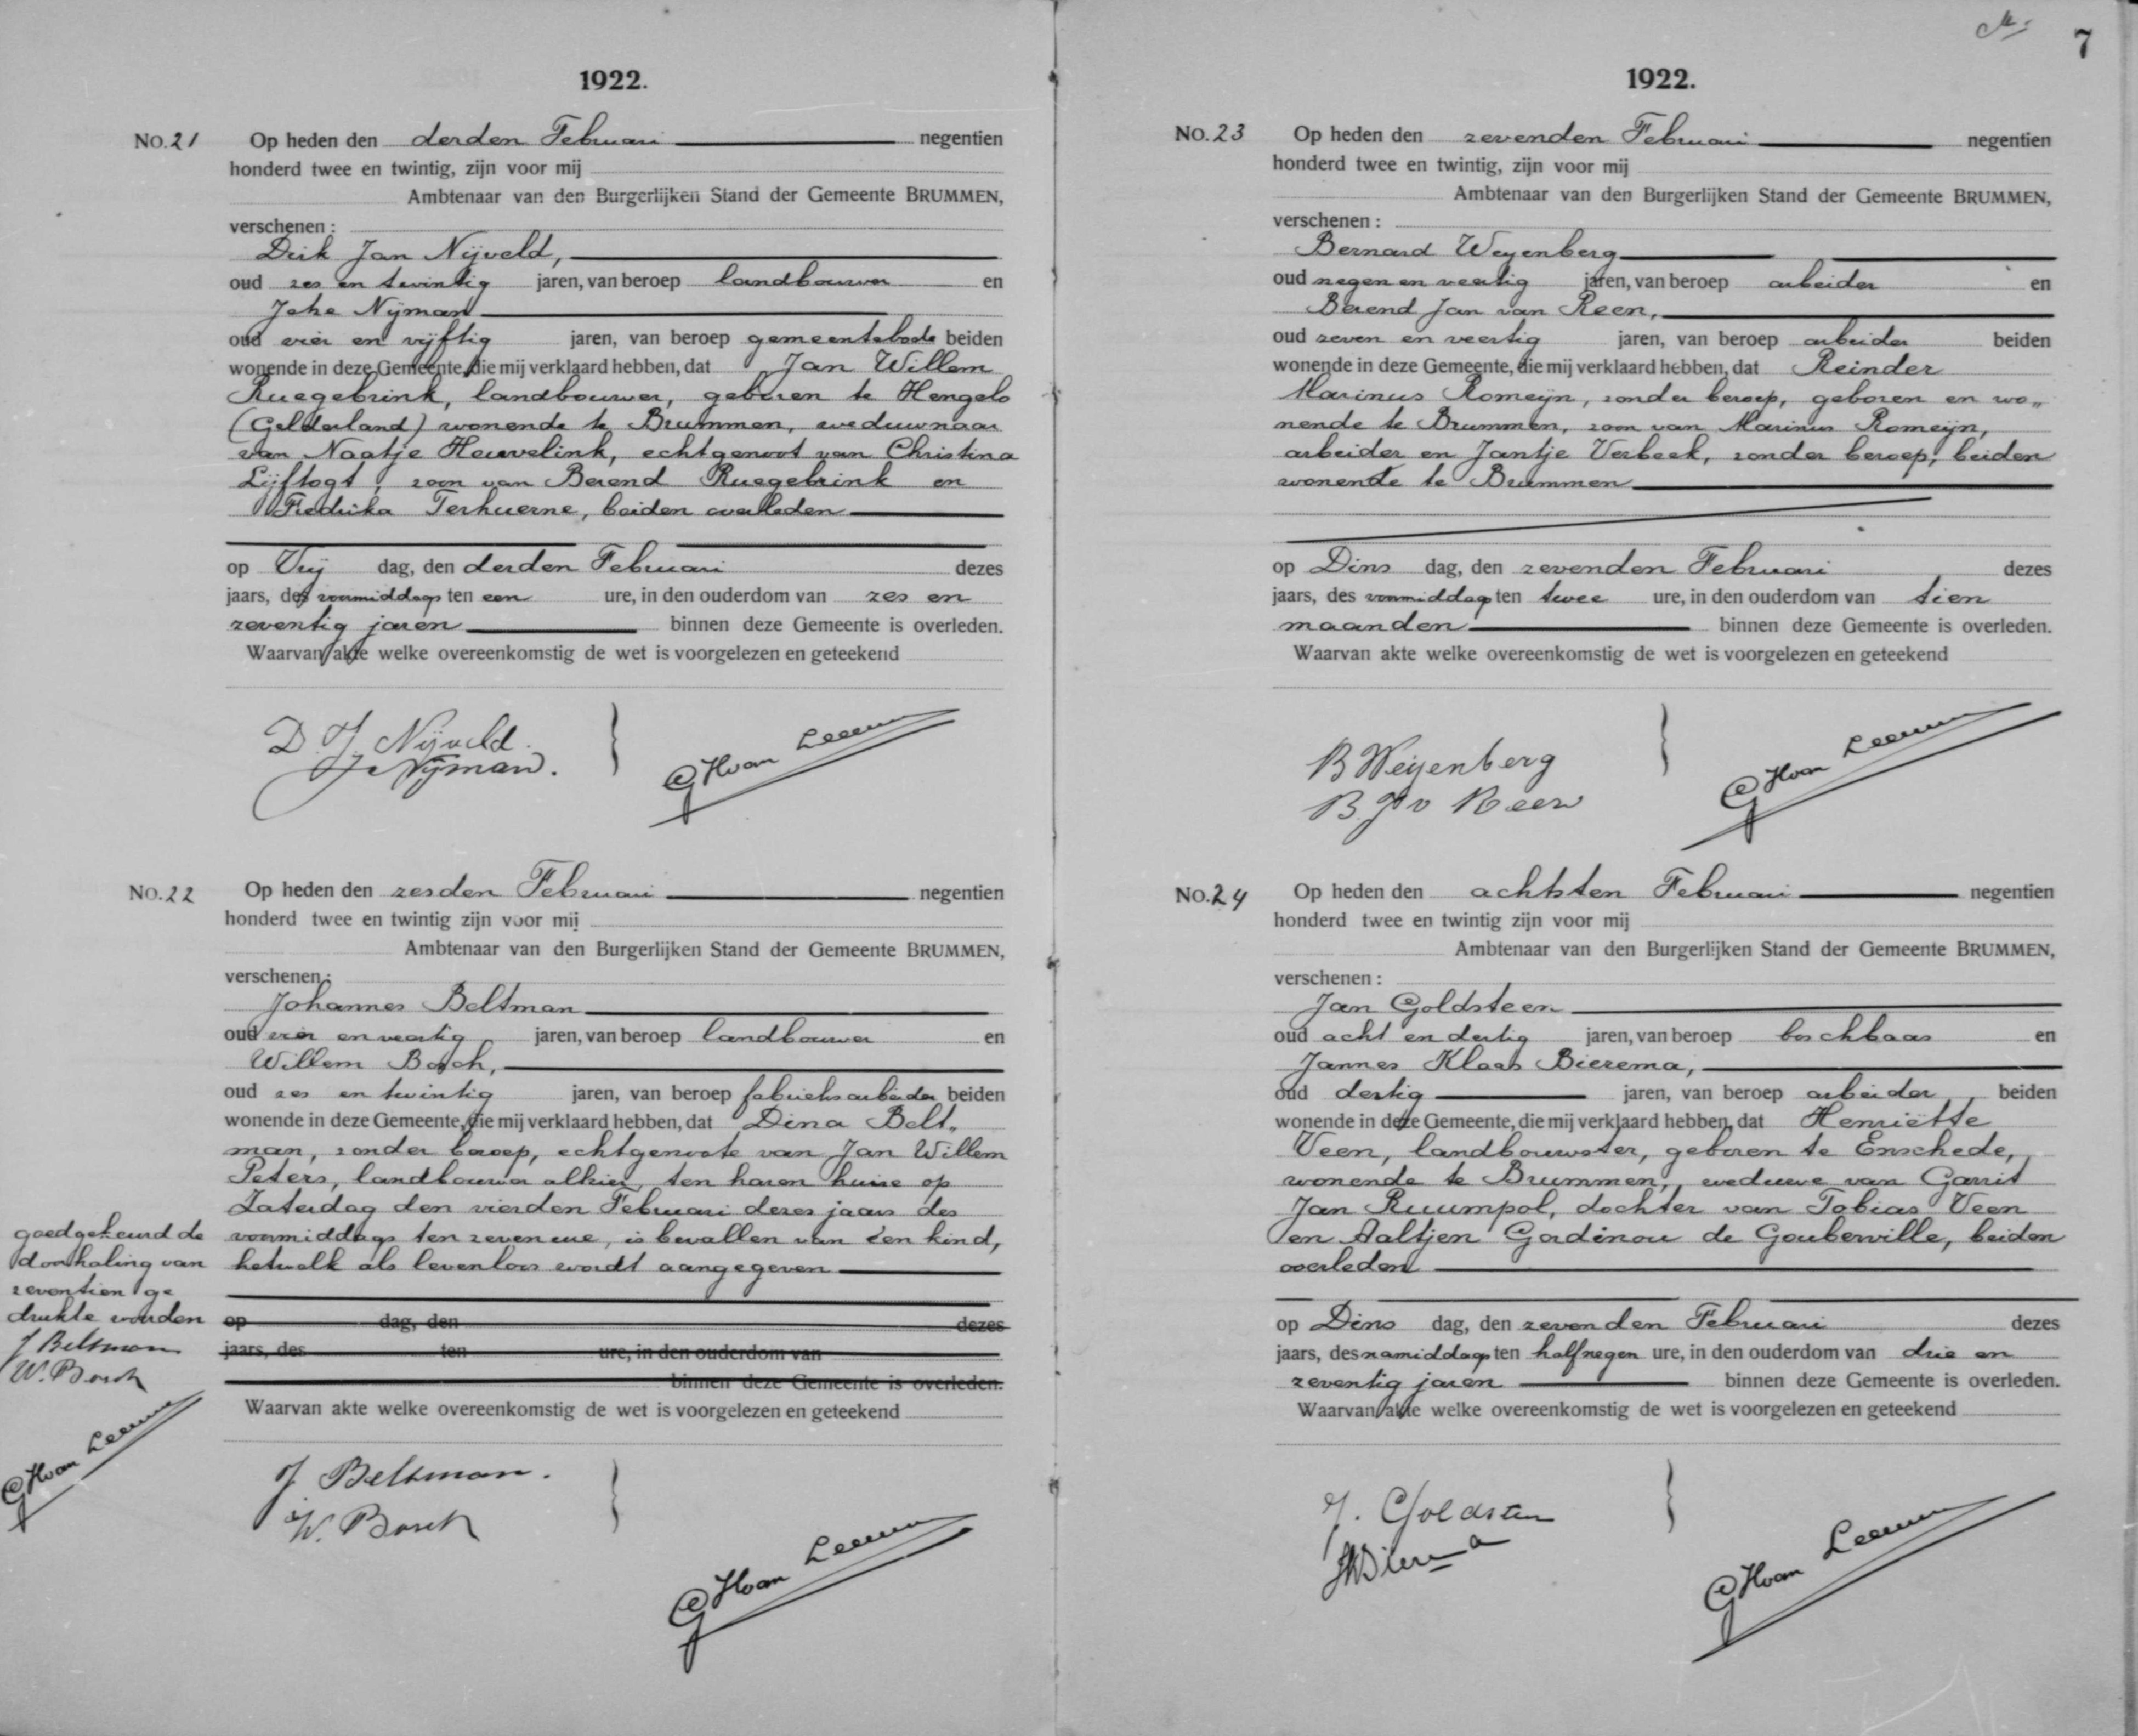 1922.
No. 21 Op heden den derden Februari negentien
honderd twee en twintig, zijn voor mij
Ambtenaar van den Burgerlijken Stand der Gemeente BRUMMEN,
verschenen :
Dirk Jan Nijveld,
oud zes en twintig jaren, van beroep landbouwer en
Nijman
oud vier en vijftig jaren, van beroep gemeentebode beiden
wonende in deze Gemeente, die mij verklaard hebben, dat Jan Willem
Ruegebrink, landbouwer, geboren te Hengelo
(Gelderland) wonende te Brummen, weduwnaar
van Naatje Heuvelink, echtgenoot van Christina
Lijftogt, zoon van Berend Ruegebrink en
Fredrika Terhuerne, beiden overleden
op Vrij dag, den derden Februari dezes
jaars, des voormiddags ten een ure, in den ouderdom van zes en
zeventig jaren binnen deze Gemeente is overleden.
Waarvan akte welke overeenkomstig de wet is voorgelezen en geteekend
D. J. Nijveld.
J Nijman.
GHvan Leeuwen
No. 22 Op heden den zesden Februari negentien
honderd twee en twintig zijn voor mij
Ambtenaar van den Burgerlijken Stand der Gemeente BRUMMEN,
verschenen :
Johannes Beltman
oud vier en veertig jaren, van beroep landbouwer en
Willem Bosch,
oud zes en twintig jaren, van beroep fabrieksarbeider beiden
wonende in deze Gemeente, die mij verklaard hebben, dat Dina Belt„
man, zonder beroep, echtgenoote van Jan Willem
Peters, landbouwer alhier, ten haren huize op
Zaterdag den vierden Februari dezes jaars des
voormiddags ten zeven ure, is bevallen van een kind,
hetwelk als levenloos wordt aangegeven
op dag, den dezes
jaars, des ten ure, in den ouderdom van
binnen deze Gemeente is overleden.
Waarvan akte welke overeenkomstig de wet is voorgelezen en geteekend
J Beltman.
W. Bosch
GHvan Leeuwen
goedgekeurd de
doorhaling van
zeventien ge
drukte woorden
J Beltman
W. Bosch
GHvan Leeuwen
7
1922.
No. 23 Op heden den zevenden Februari negentien
honderd twee en twintig, zijn voor mij
Ambtenaar van den Burgerlijken Stand der Gemeente BRUMMEN,
verschenen :
Bernard Weyenberg
oud negen en veertig jaren, van beroep arbeider en
Berend Jan van Reen,
oud zeven en veertig jaren, van beroep arbeider beiden
wonende in deze Gemeente, die mij verklaard hebben, dat Reinder
Marinus Romeijn, zonder beroep, geboren en wo„
nende te Brummen, zoon van Marinus Romeijn,
arbeider en Jantje Verbeek, zonder beroep, beiden
wonende te Brummen
op Dins dag, den zevenden Februari dezes
jaars, des voormiddags ten twee ure, in den ouderdom van tien
maanden binnen deze Gemeente is overleden.
Waarvan akte welke overeenkomstig de wet is voorgelezen en geteekend
B Weijenberg
B. J v Reen
GHvan Leeuwen
No. 24 Op heden den achtsten Februari negentien
honderd twee en twintig zijn voor mij
Ambtenaar van den Burgerlijken Stand der Gemeente BRUMMEN,
verschenen :
Jan Goldsteen
oud acht en dertig jaren, van beroep boschbaas en
Jannes Klaas Bierema,
oud dertig jaren, van beroep arbeider, beiden
wonende in deze Gemeente, die mij verklaard hebben, dat Henriëtte
Veen, landbouwster, geboren te Enschede,
wonende te Brummen, weduwe van Garrit
Jan Ruumpol, dochter van Tobias Veen
en Aaltjen Gardinou de Gouberville, beiden
overleden
op Dins dag, den zevenden Februari dezes
jaars, des namiddags ten half negen ure, in den ouderdom van drie en
zeventig jaren binnen deze Gemeente is overleden.
Waarvan akte welke overeenkomstig de wet is voorgelezen en geteekend
J. Goldsteen
JKBierema
GHvan Leeuwen